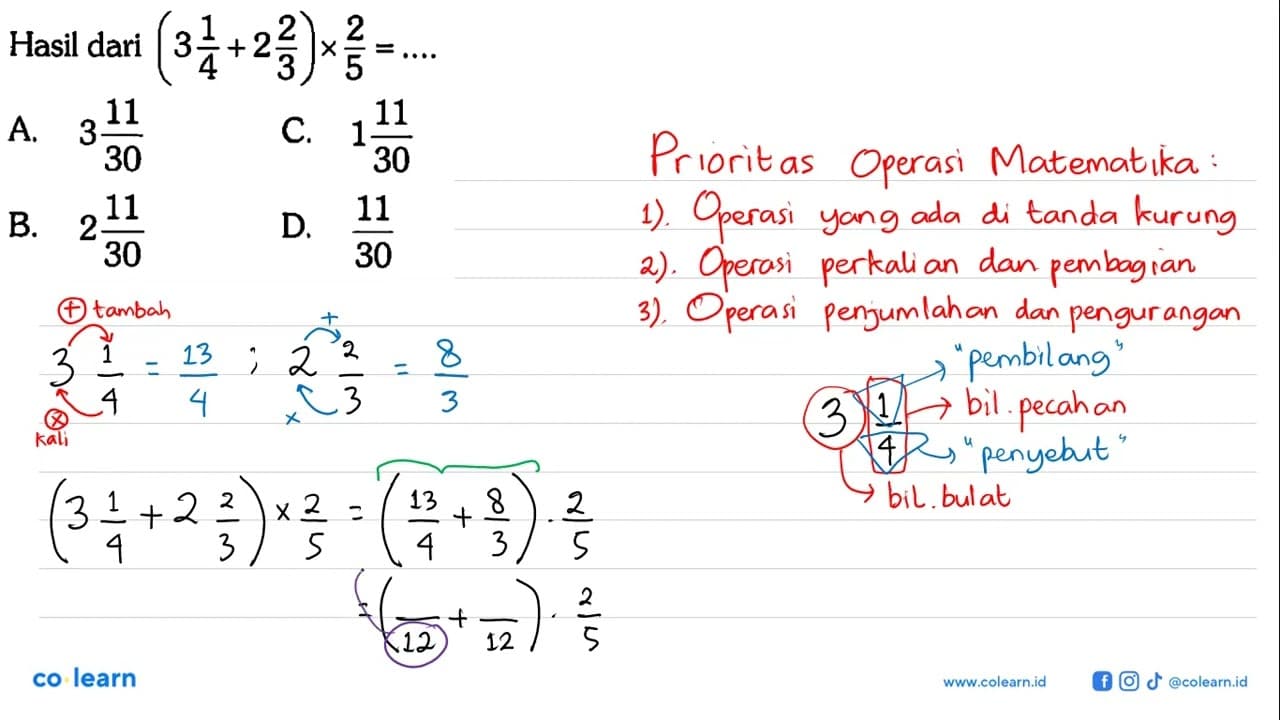 Hasil dari (3 1/4 + 2 2/3) × 2/5 = ....
A. 3 11/30
C. 1 11/30
B. 2 11/30
D. 11/30
Prioritas Operasi Matematika :
1). Operasi yang ada di tanda kurung
2). Operasi perkalian dan pembagian
3). Operasi penjumlahan dan pengurangan
(+) tambah
+
3 1/4 = 13/4 ; 2 2/3 = 8/3
(x) kali
x
"pembilang"
3 1/4
bil. pecahan
"penyebut"
bil. bulat
(3 1/4 + 2 2/3) × 2/5 = (13/4 + 8/3) . 2/5
= (__/12 + __/12) . 2/5
co learn
www.colearn.id
@colearn.id